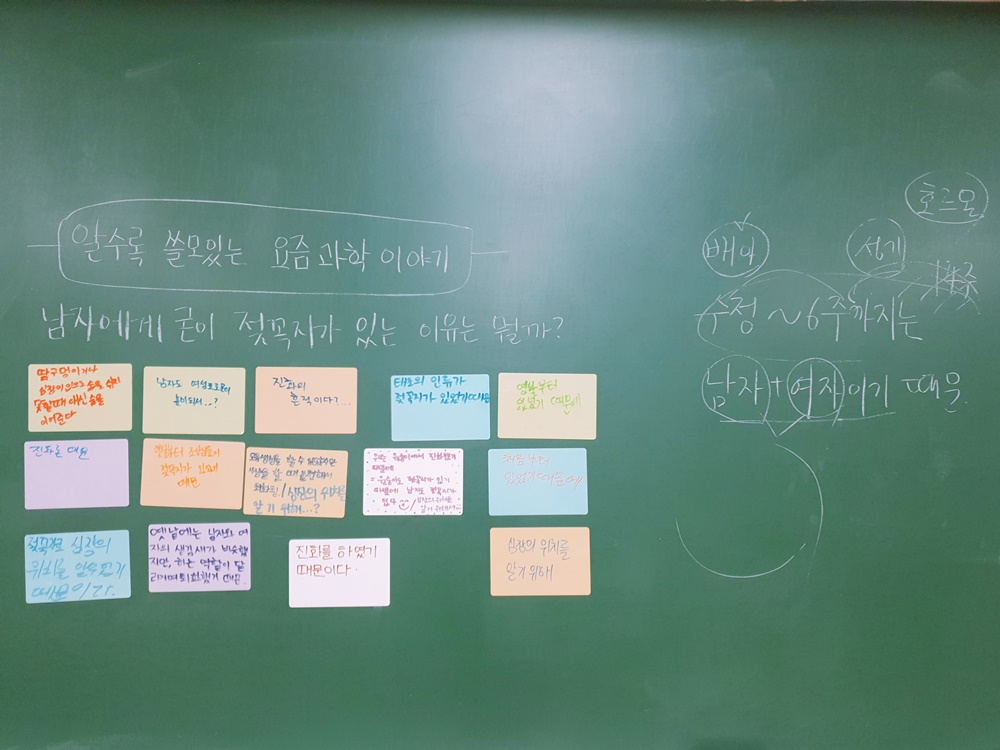 알수록 쓸모있는 요즘과학 이야기
남자에게 굳이 젖꼭지가 있는 이유는 뭘까?
땀구멍이거나
심장이
못할때 대신 숨을
쉬어준다
남자도 여성호르몬이
진화의
흔적이다?...
태초의 인류가
젖꼭지가 있었기때문
옛날부터
있었기 때문에
진화 때문
옛날부터 조상들이
젖꼭지가 있었기
때문
심장의 위치를
알기 위해...?
우리는 원숭이에서 진화했기
때문에
젖꼭지가 있기
때문에 남자도 젖꼭지가
처음부터
있었기때문에
젖꼭지로 심장의
위치를 알수있기
때문이다.
옛날에는 남자와 여
자의 생김새가 비슷했
지만, 하는 역할이 달
라지며 퇴화했기 때문.
진화를 하였기
때문이다.
심장의 위치를
알기 위해
호르몬
배아
성기
수정~6주까지는
남자+여자이기 때문